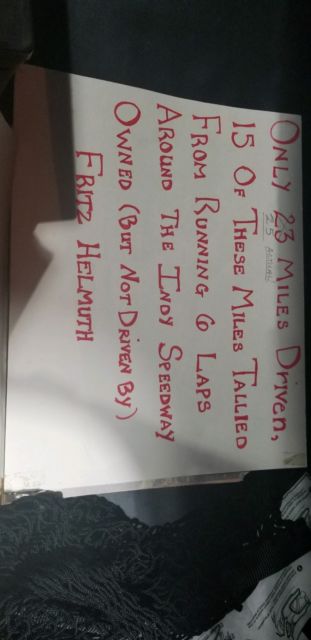 ONLY 23 MILES DRIVEN,
25 ACTUAL
15 OF THESE MILES TALLIED
FROM RUNNING 6 LAPS
AROUND THE INDY SPEEDWAY
OWNED (BUT NOT DRIVEN BY)
FRITZ HELMUTH